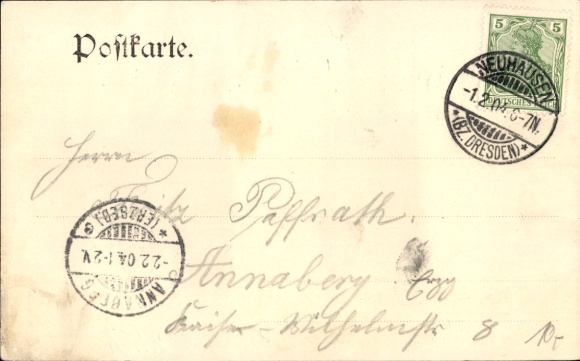 Postkarte.
5
NEUHAUSEN
-1.2.04.6-7N.
*(BZ. DRESDEN)*
Herrn
Fritz Paffrath.
Annaberg Erzg
Kaiser-Wilhelmstr 8
10.-
ANNABERG
-2.2.04.1-2V.
*(ERZGEB.)